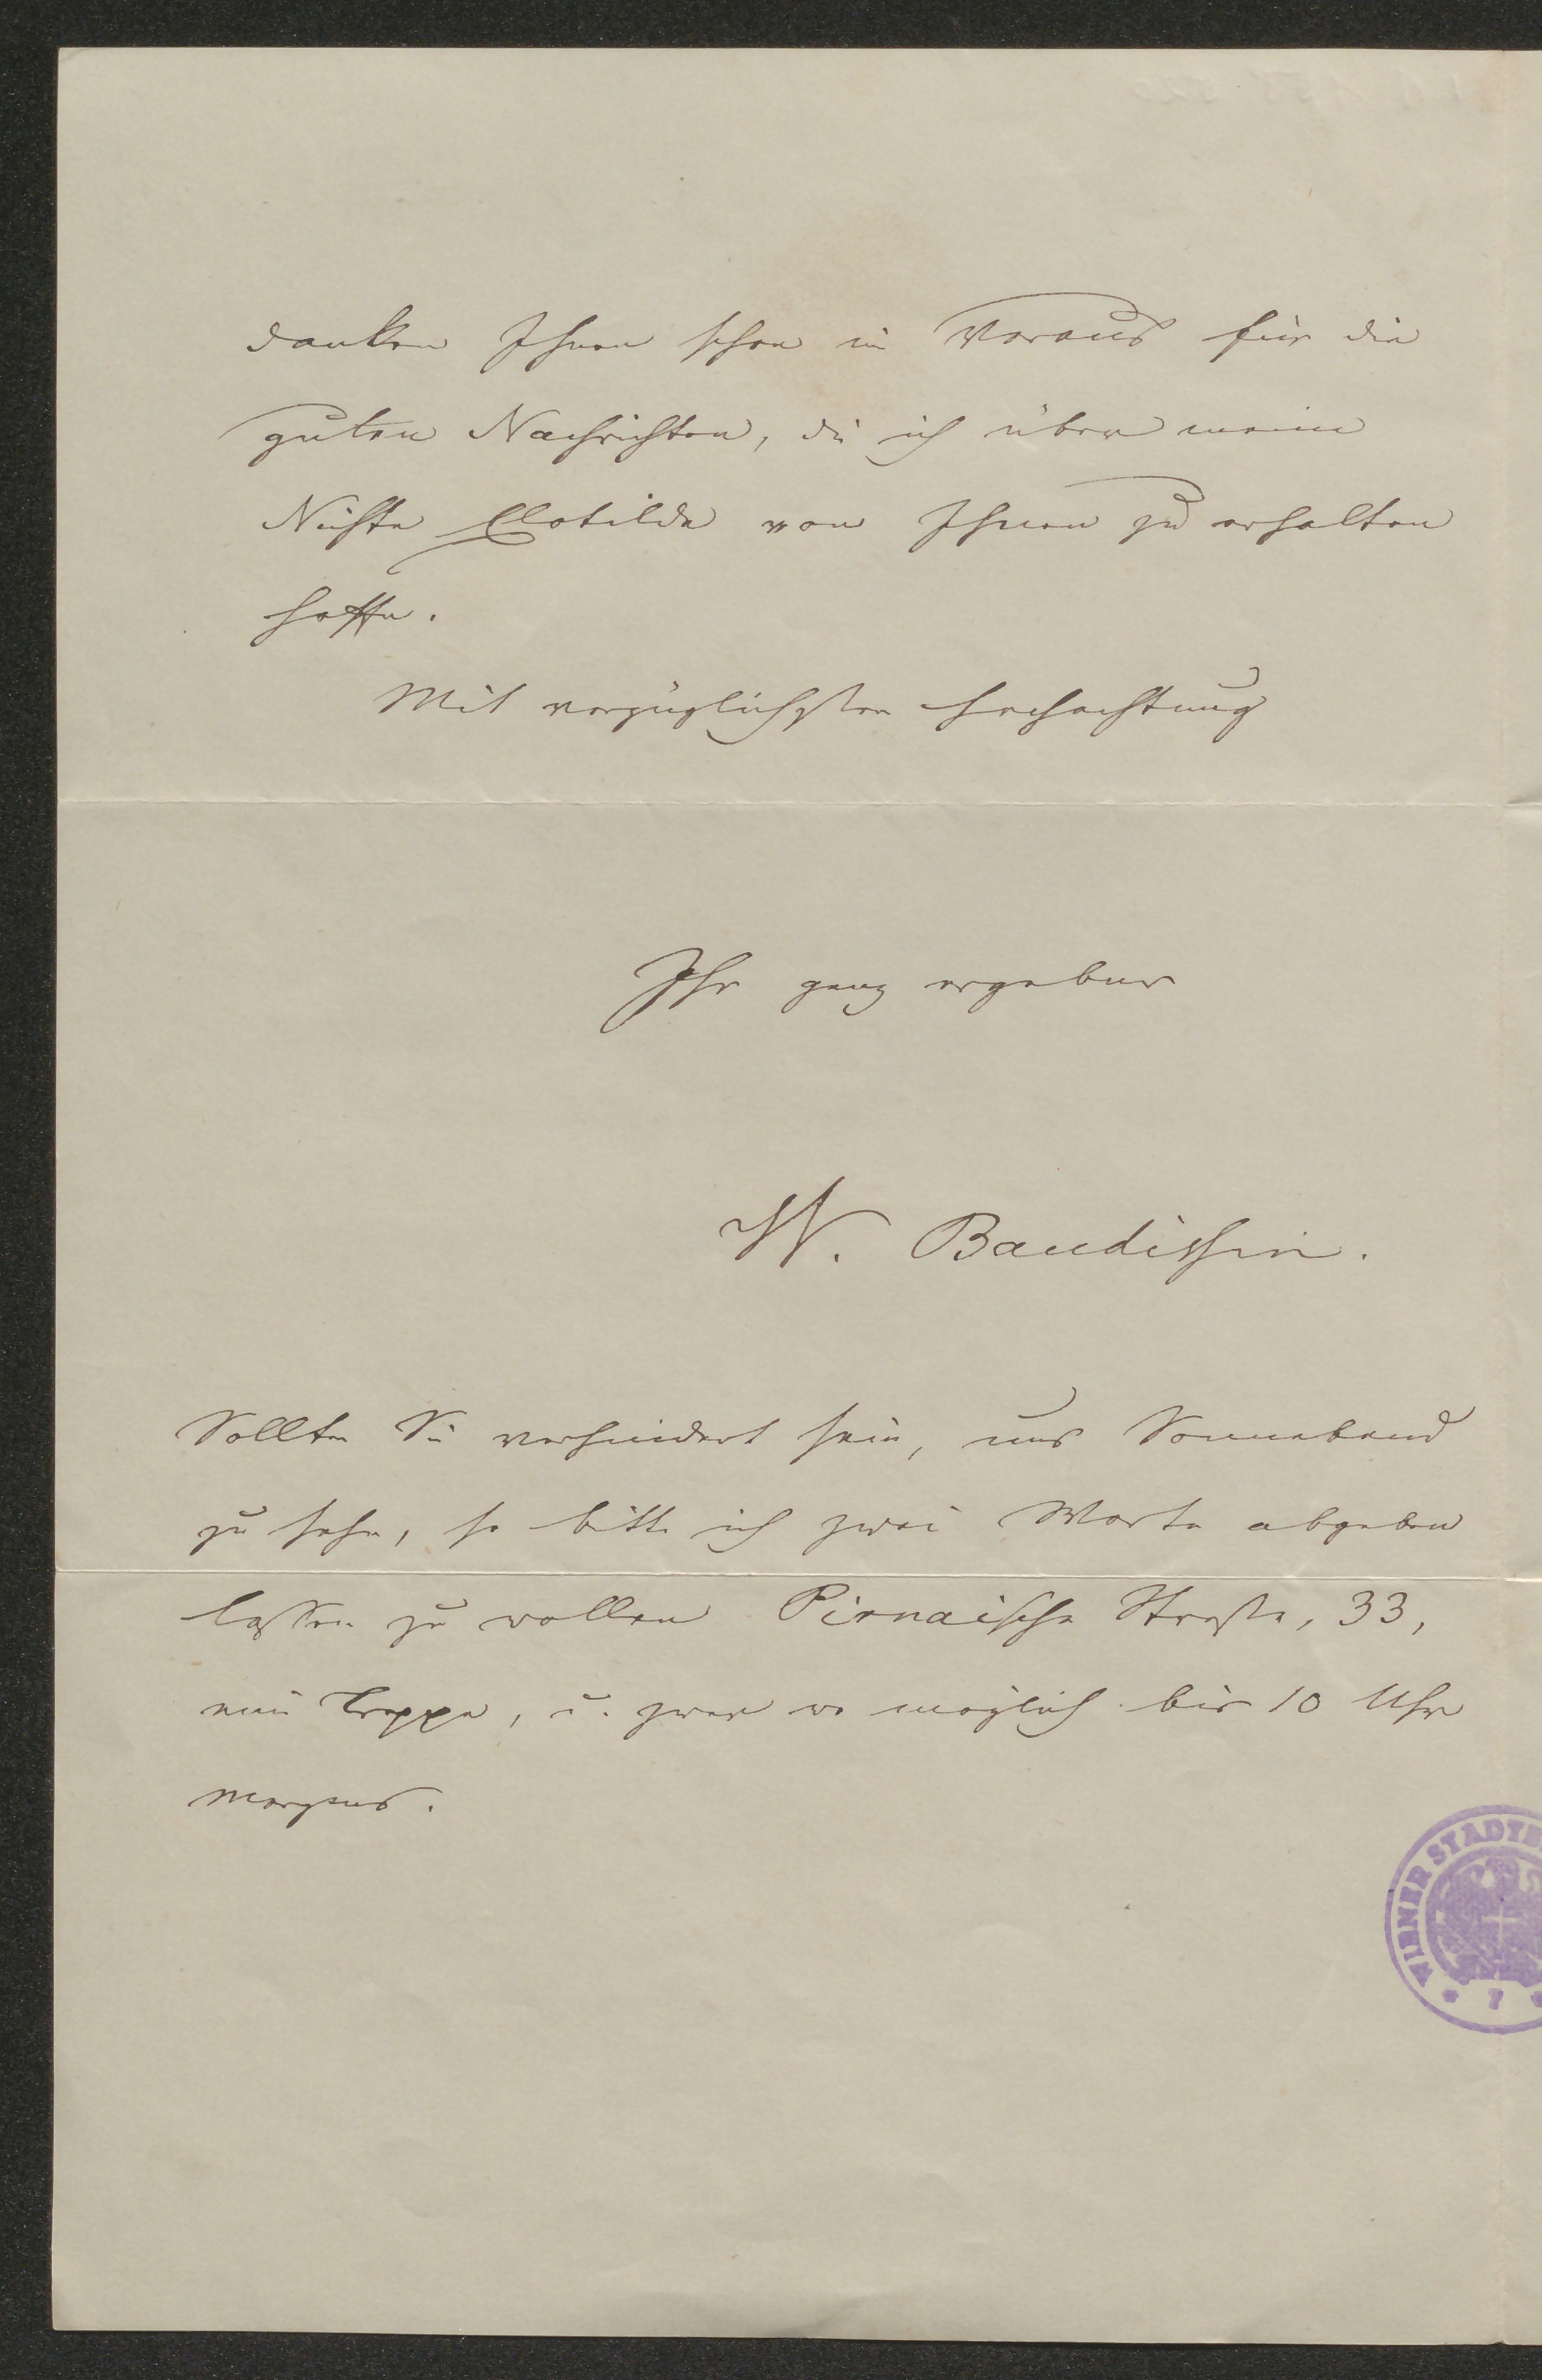 danken Ihnen schon im Voraus für die
guten Nachrichten, die ich über meine
Nichte Clotilde von Ihnen zu erhalten
hoffe.
Mit vorzüglichster Hochachtung
Ihr ganz ergebner
W. Baudissin.
Sollten Sie verhindert sein, uns Sonnabend
zu sehn, so bitte ich zwei Worte abgeben
lassen zu wollen Pirnaische Straße, 33,
eine Treppe, u. zwar wo möglich bis 10 Uhr
morgens.
WIENER STADTB
7